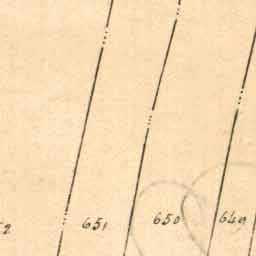 651 650 649